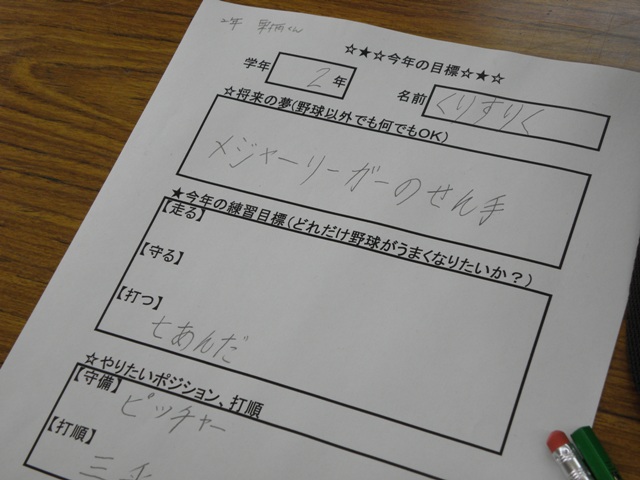 2年
☆★☆今年の目標☆★☆
学年 2年
名前 くりすりく
☆将来の夢(野球以外でも何でもOK)
メジャーリーガーのせん手
★今年の練習目標(どれだけ野球がうまくなりたいか?)
【走る】
【守る】
【打つ】
七あんだ
☆やりたいポジション、打順
【守備】
ピッチャー
【打順】
三